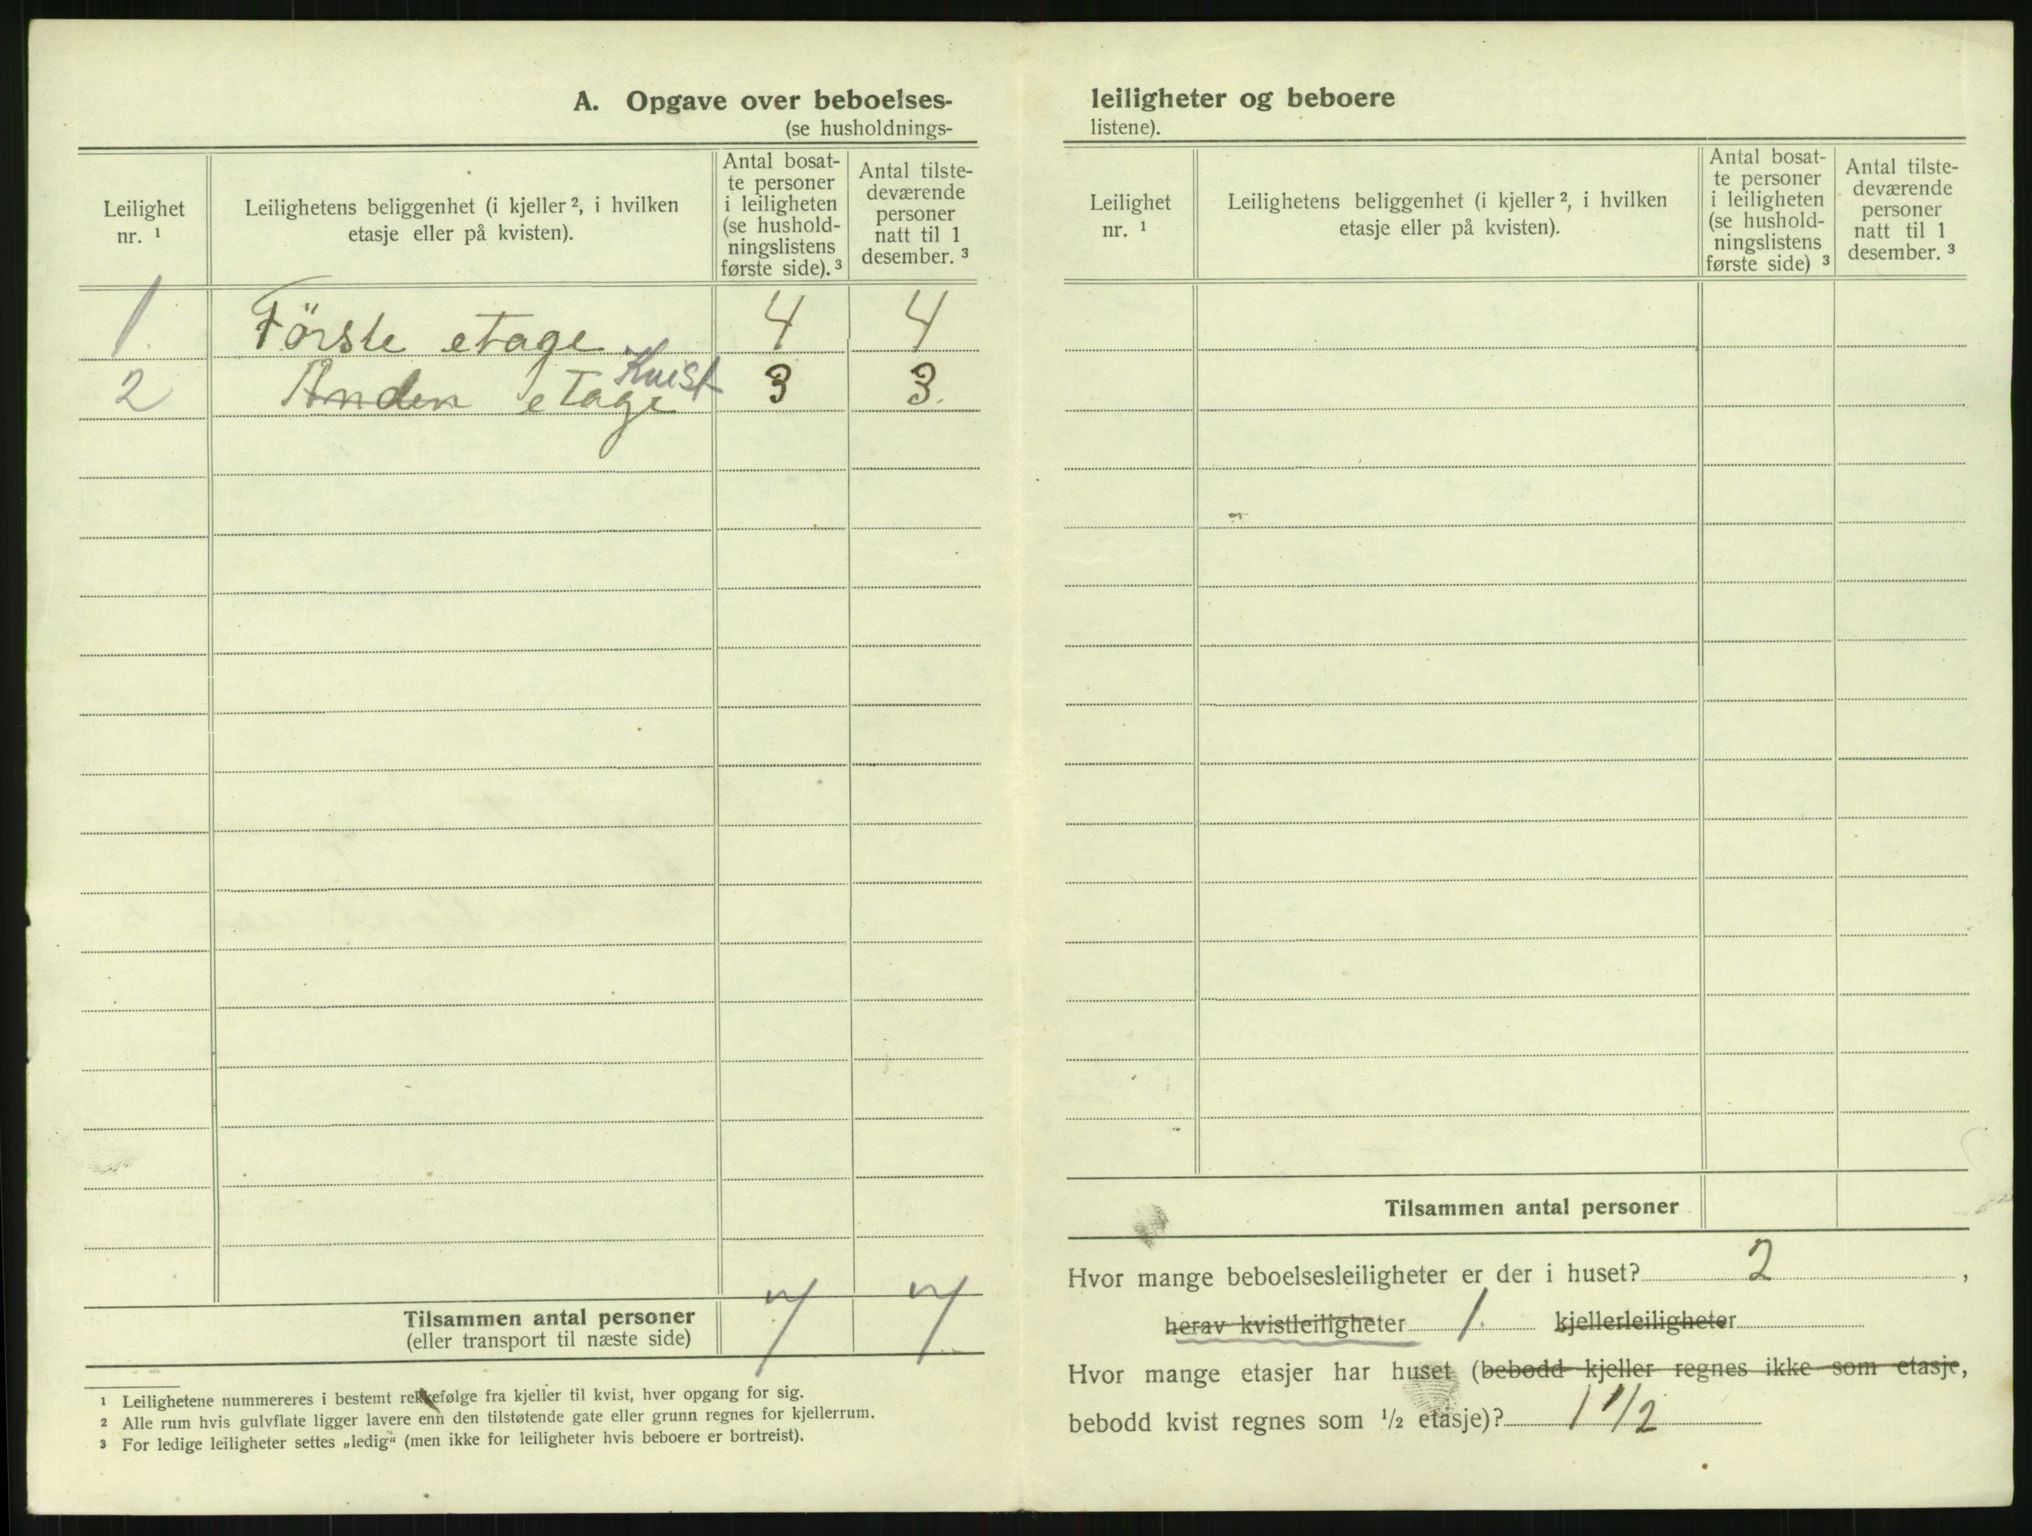 A. Opgave over beboelses-
(se husholdnings-
Leilighet
nr. ¹
Leilighetens beliggenhet (i kjeller ², i hvilken
etasje eller på kvisten).
Antal bosat-
te personer
i leiligheten
(se hushold-
ningslistens
første side). ³
Antal tilste-
deværende
personer
natt til 1
desember. ³
1. Förste etage 4 4
Kvist
2 Anden etage 3 3.
Tilsammen antal personer 7 7
(eller transport til næste side)
¹ Leilighetene nummereres i bestemt rekkefølge fra kjeller til kvist, hver opgang for sig.
² Alle rum hvis gulvflate ligger lavere enn den tilstøtende gate eller grunn regnes for kjellerrum.
³ For ledige leiligheter settes „ledig“ (men ikke for leiligheter hvis beboere er bortreist).
leiligheter og beboere
listene).
Leilighet
nr. ¹
Leilighetens beliggenhet (i kjeller ², i hvilken
etasje eller på kvisten).
Antal bosat-
te personer
i leiligheten
(se hushold-
ningslistens
første side) ³
Antal tilste-
deværende
personer
natt til 1
desember. ³
Tilsammen antal personer
Hvor mange beboelsesleiligheter er der i huset? 2 ,
herav kvistleiligheter 1. kjellerleiligheter
Hvor mange etasjer har huset (bebodd kjeller regnes ikke som etasje,
bebodd kvist regnes som ½ etasje)? 1 1/2